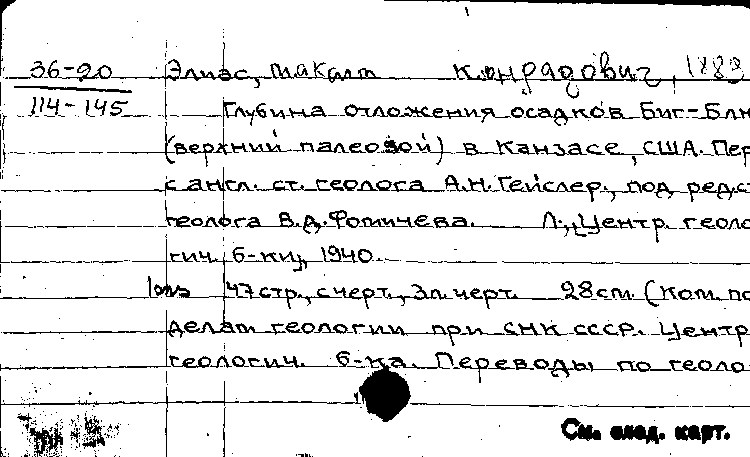 36-20 Элиас, Макали Конрадович, 1889
114-145 Глубина отложения осадков Биг-Блю
(верхний палеозой) в Канзасе, США. Пер
с англ. ст. геолога А.Н. Гейслер., под ред. ст
геолога В.Д. Фомичева. Л., "Центр. геоло
гич. б-ки", 1940.
47 стр., с черт., 3 л. черт. 28 cm. (Ком. по
делам геологии при СНК СССР. Центр
геологич. б-ка. Переводы по геоло
См. след. карт.